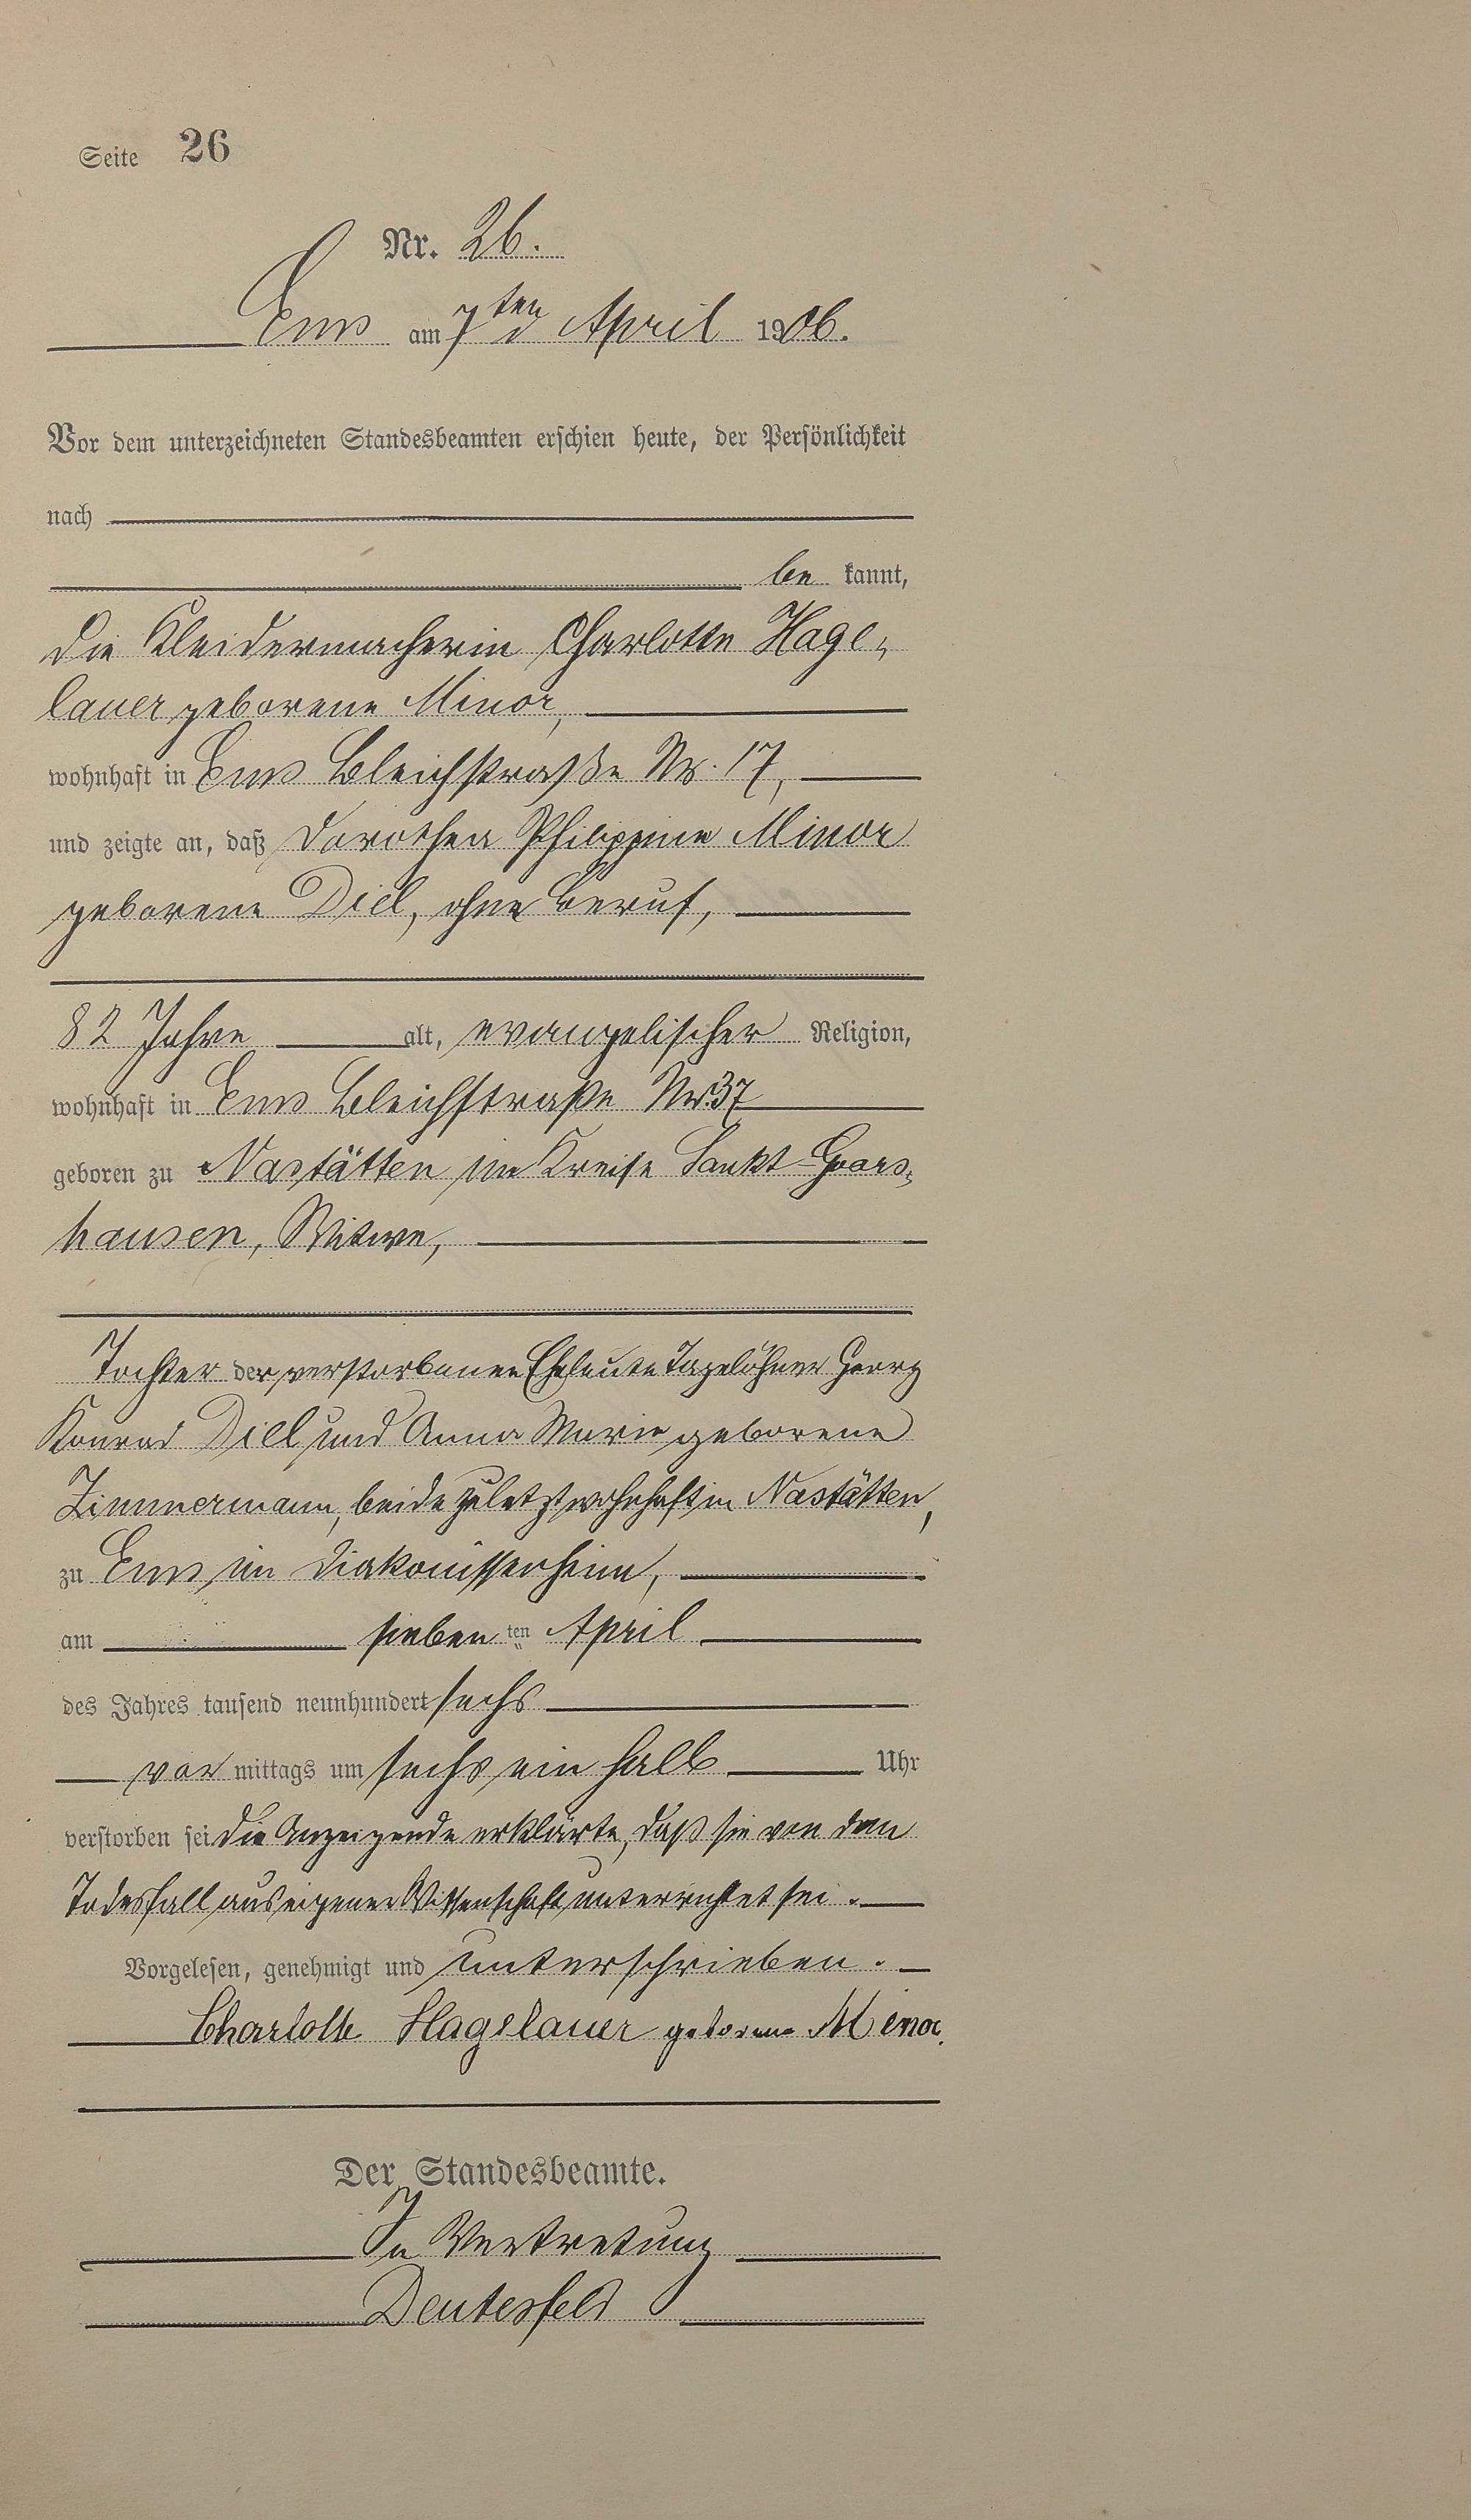 Seite 26
Nr. 26.
Ems am 7ten April 1906.
Vor dem unterzeichneten Standesbeamten erschien heute, der Persönlichkeit
nach
be kannt,
die Kleidermacherin Charlotte Hage-
lauer geborene Minor,
wohnhaft in Ems Bleichstraße Nr. 17,
und zeigte an, daß Dorothea Philippine Minor
geborene Diel, ohne Beruf,
82 Jahre alt, evangelischer Religion,
wohnhaft in Ems Bleichstraße Nr. 37
geboren zu Nastätten im Kreise Sankt-Goars-
hausen, Witwe,
Tochter der verstorbenen Eheleute Tagelöhner Georg
Konrad Diel und Anna Marie geborene
Zimmermann, beide zuletzt wohnhaft in Nastätten,
zu Ems im Diakonissenheim,
am siebenten April
des Jahres tausend neunhundert sechs
vor mittags um sechs ein halb Uhr
verstorben sei. Die Anzeigende erklärte, daß sie von dem
Todesfall aus eigener Wissenschaft unterrichtet sei.
Vorgelesen, genehmigt und unterschrieben.
Charlotte Hagelauer geborene Minor.
Der Standesbeamte.
In Vertretung
Deutesfeld